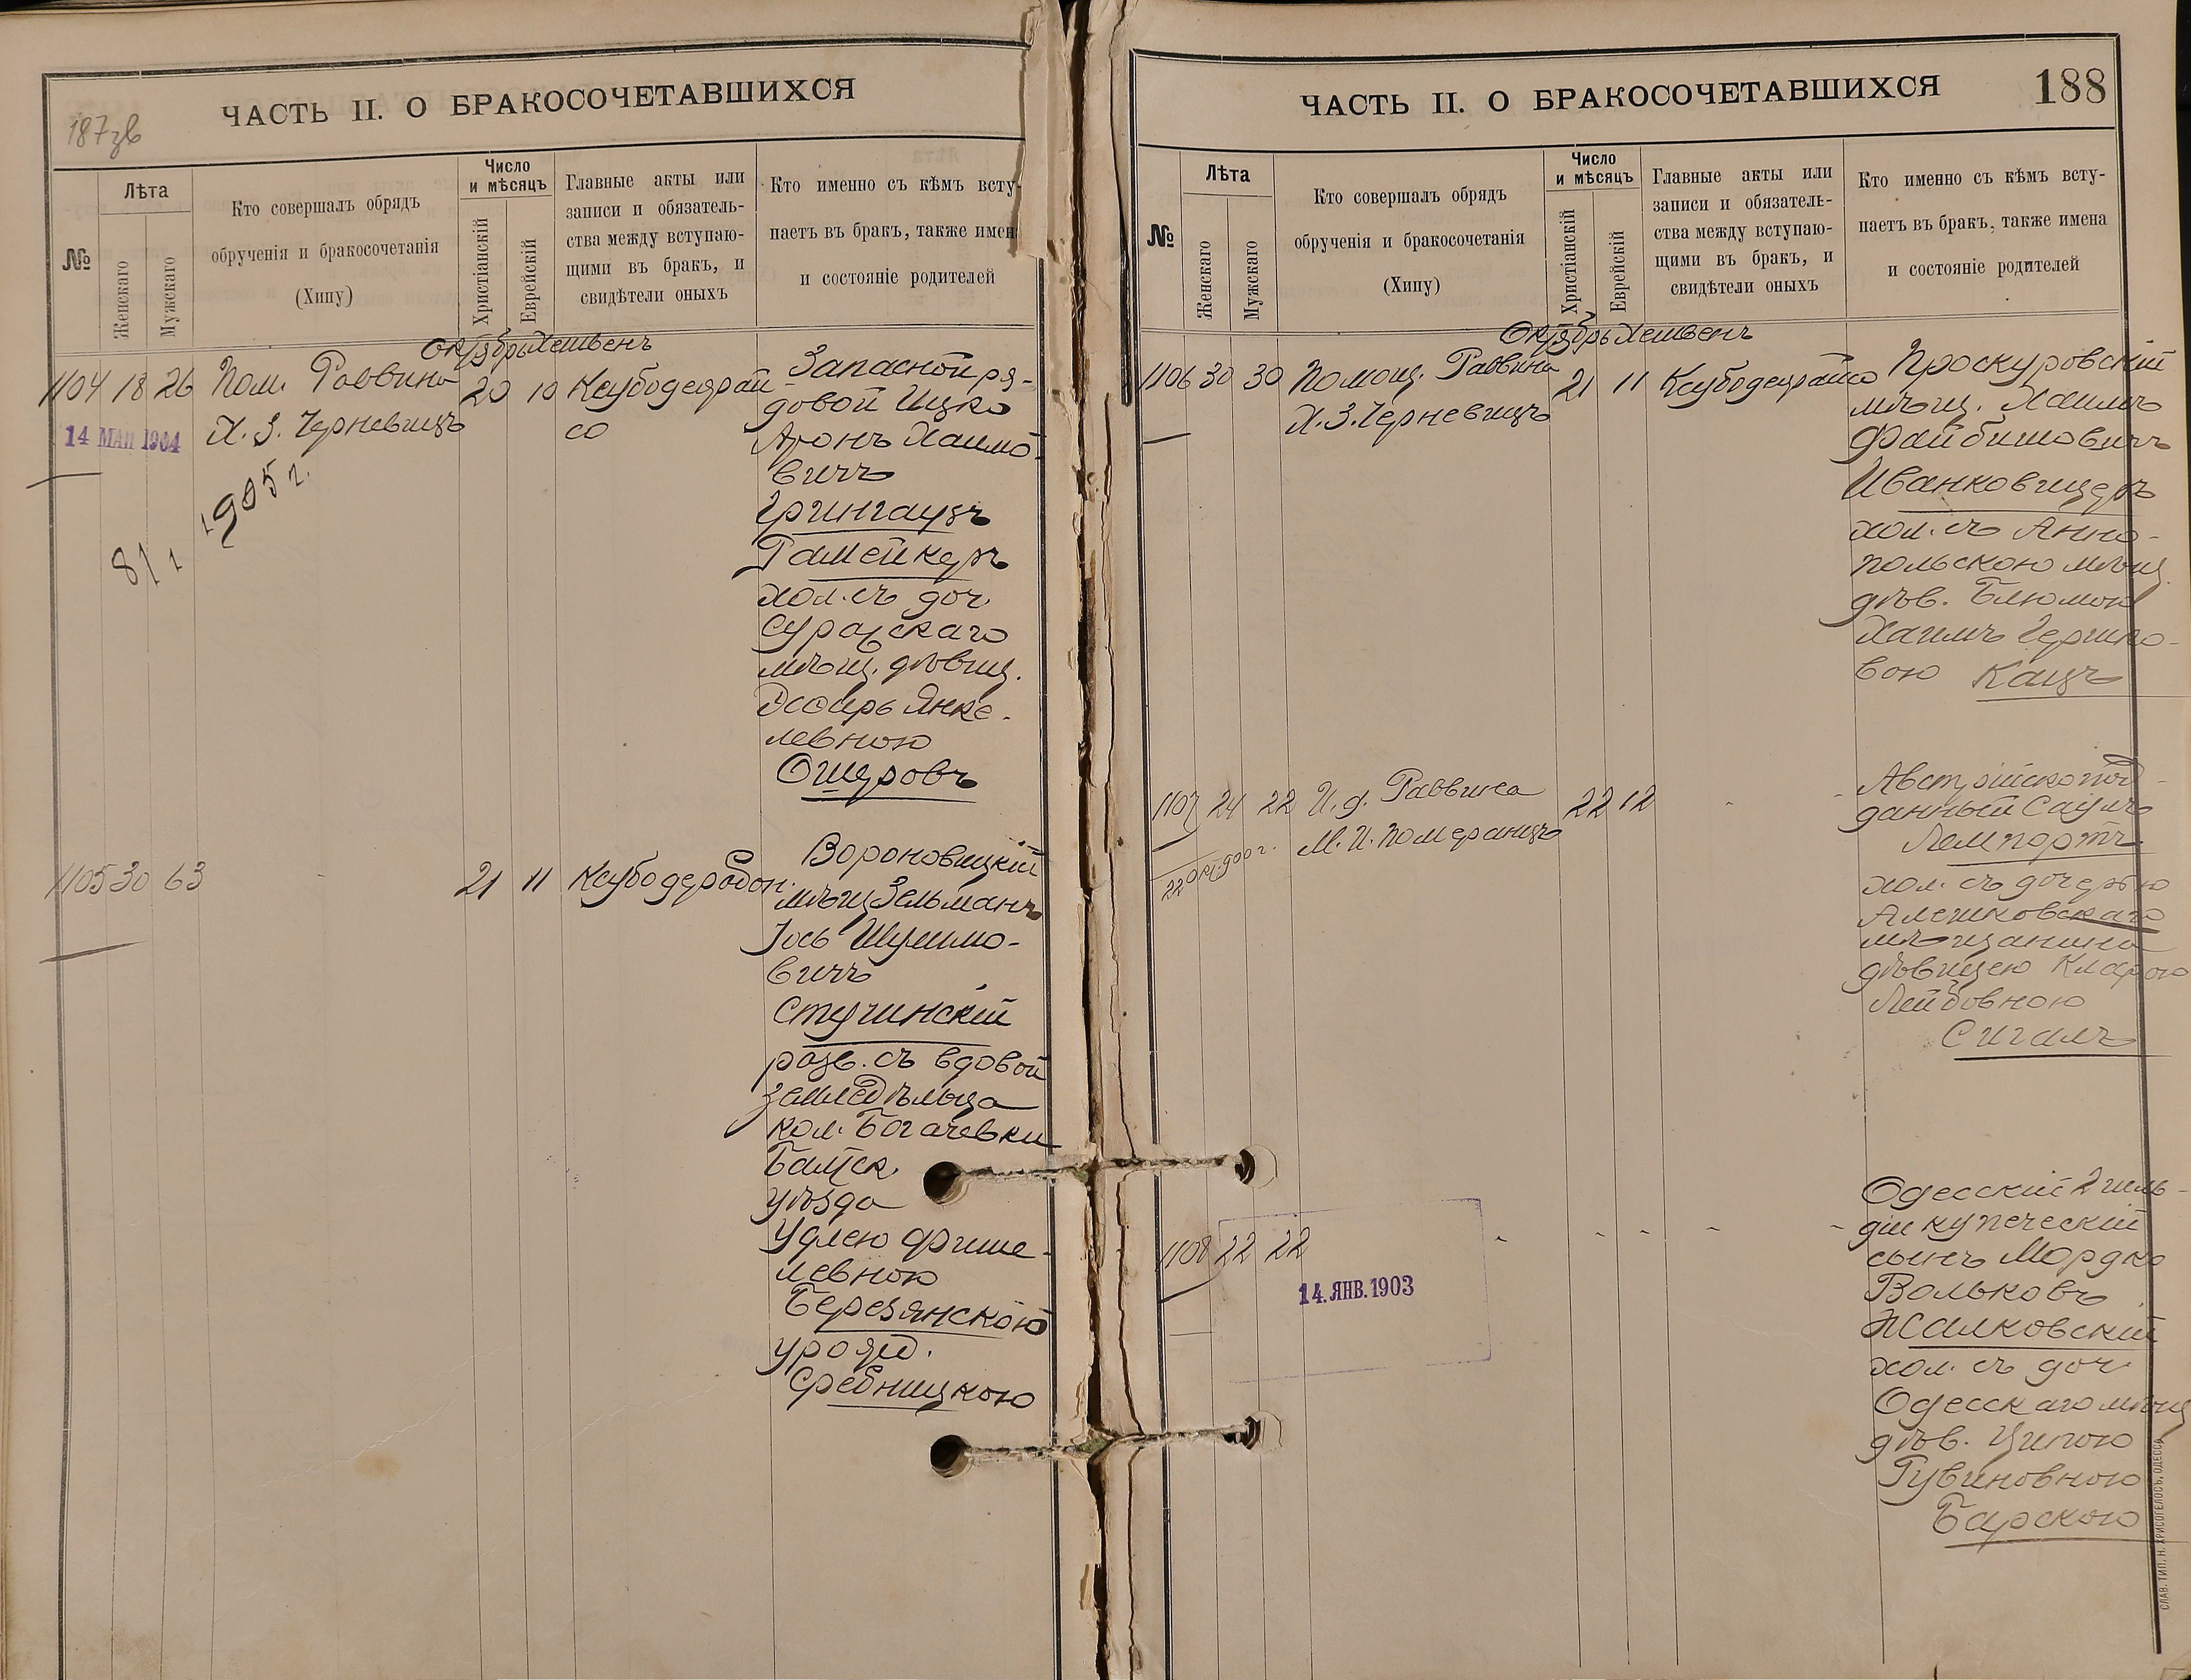 187 зв
ЧАСТЬ II. О БРАКОСОЧЕТАВШИХСЯ
№
Лѣта
Женскаго
Мужскаго
Кто совершалъ обрядъ
обрученія и бракосочетанія
(Хипу)
Число
и мѣсяцъ
Христіанскій
Еврейскій
Главные акты или
записи и обязатель-
ства между вступаю-
щими въ бракъ, и
свидѣтели оныхъ
Кто именно съ кѣмъ всту-
паетъ въ бракъ, также имен
и состояніе родителей
Октябрь Хешвенъ
1104 18 26 Пом. Раввина 20 10 Ксубодецрай
со
Х. З. Черневицъ
14 МАЙ 1904
1905 г.
8/1
Запасной ря-
довой Ицко
Аронъ Хаимо-
вичъ
Грингаузъ
Рамейкеръ
хол. съ доч
Суражскаго
мѣщ. дѣвиц.
Эсѳирь Янке-
левною
Ошеровъ
1105 30 63 21 11 Ксубодерабон.
Вороновицкій
мѣщ Зельманъ
Іось Шулимо-
вичъ
Стучинскій
разв. съ вдовой
земледѣльца
кол. Богачевки
Балтск.
уѣзда
Удлею Фише-
левною
Березянскою
урожд.
Сребницкою
ЧАСТЬ II. О БРАКОСОЧЕТАВШИХСЯ
188
№
Лѣта
Женскаго
Мужскаго
Кто совершалъ обрядъ
обрученія и бракосочетанія
(Хипу)
Число
и мѣсяцъ
Христіанскій
Еврейскій
Главные акты или
записи и обязатель-
ства между вступаю-
щими въ бракъ, и
свидѣтели оныхъ
Кто именно съ кѣмъ всту-
паетъ въ бракъ, также имена
и состояніе родителей
Октябрь Хешвенъ
1106 30 30 Помощ. Раввина 21 11 Ксубодецрайсо
Х. З. Черневицъ
Проскуровскій
мѣщ. Хаимъ
Файбишовичъ
Иванковицеръ
хол. съ Анно-
польскою мѣщ
дѣв. Блюмою
Хаимъ Гершко-
вою Кацъ
1107 24 22 И. д. Раввина 22 12 -
М. И. Померанцъ
22 окт 900 г.
Австрійскопод-
данный Саулъ
Лемпортъ
хол. съ дочерью
Алешковскаго
мѣщанина
дѣвицею Кларою
Лейбовною
Сигалъ
1108 22 22 - - - -
14. ЯНВ. 1903
Одесскій 2 гиль-
діи купеческій
сынъ Мордко
Вольковъ
Жалковскій
хол. съ доч
Одесскаго мѣщ
дѣв. Ципою
Рувиновною
Барскою
СЛАВ. ТИП. Н. ХРИСОГЕЛОСЪ, ОДЕССА